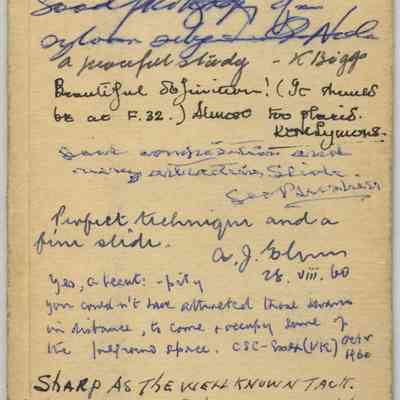 Good photography of a
sylvan
a peaceful study - K Biggs
Beautiful definition! (It shemed
be at F.32.) Almost too placid.
Ken Symons.
Good composition and
very attractive slide.
Perfect technique and a
fine slide.
A. J.
28. VIII. 60
Yes, a beaut: - pity
you couldn't have attracted those swans
in distance, to come & occupy some of
the foreground space. CSC-Scott (UK) Octr
1960
SHARP AS THE WELL KNOWN TACK.